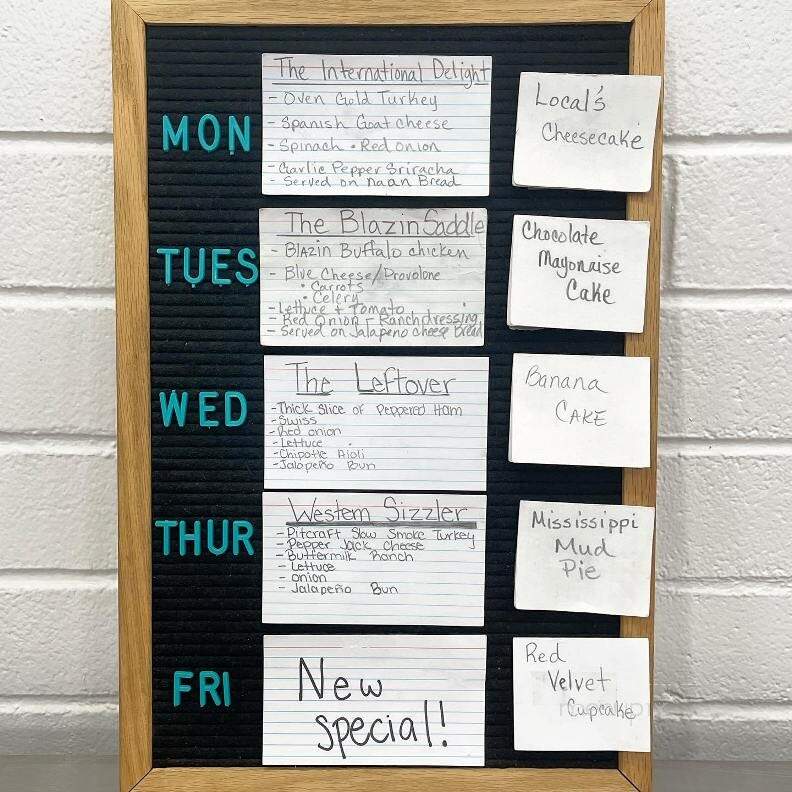 MON
The International Delight
- Oven Gold Turkey
- Spanish Goat cheese
- Spinach • Red onion
- Garlic Pepper Sriracha
- Served on naan Bread
Local's
Cheesecake
TUES
The Blazin Saddle
- Blazin Buffalo chicken
- Blue Cheese/Provolone
• Carrots
• Celery
- Lettuce + Tomato
- Red Onion - Ranch dressing
- Served on Jalapeno cheese Bread
Chocolate
Mayonaise
Cake
WED
The Leftover
- Thick Slice of Peppered Ham
- Swiss
- Red onion
- Lettuce
- Chipotle Aioli
- Jalapeño Bun
Banana
CAKE
THUR
Western Sizzler
- Pitcraft Slow Smoke Turkey
- Pepper Jack Cheese
- Buttermilk Ranch
- Lettuce
- onion
- Jalapeño Bun
Mississippi
Mud
Pie
FRI
New
special!
Red
Velvet
Cupcake